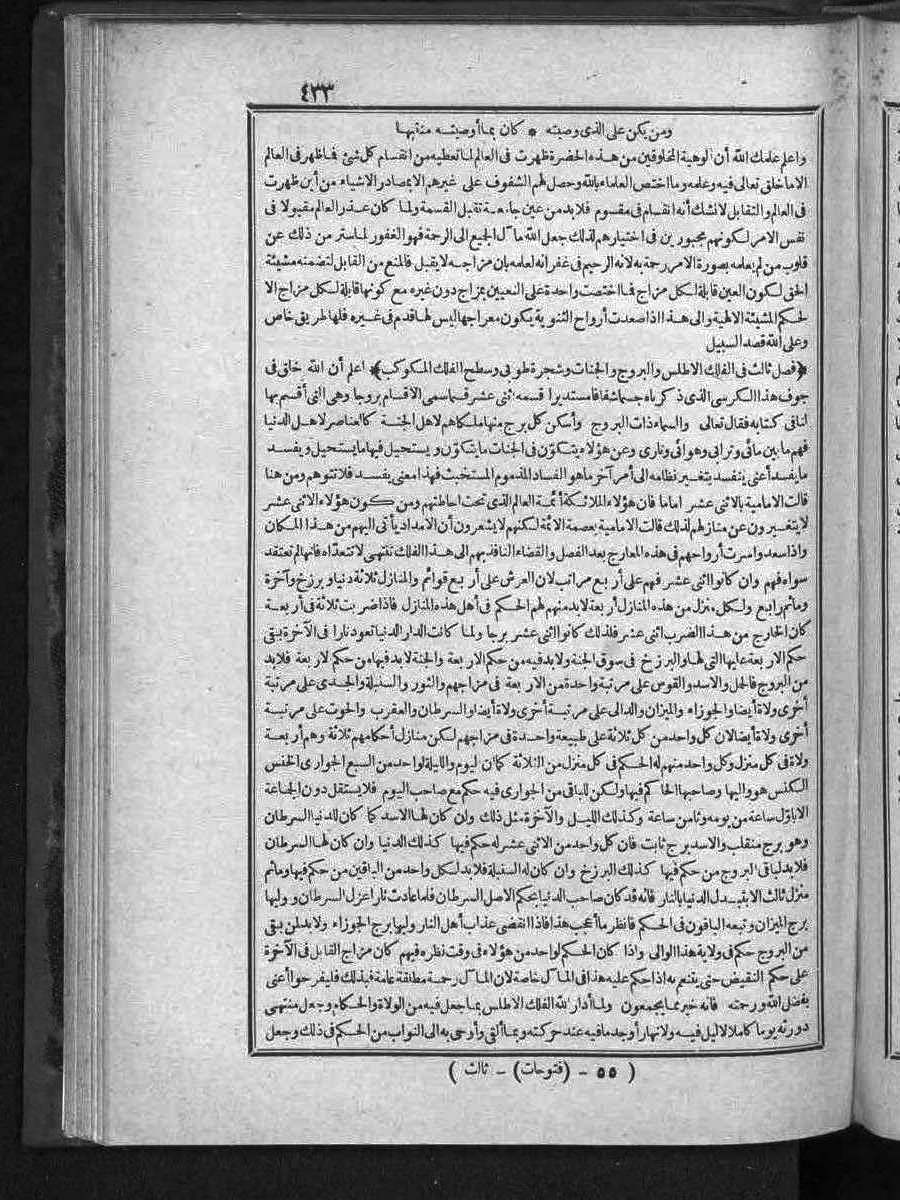 ٤٣٣
ومن يكن على الذى وصيته * كان بما أوصيته منتبها
واعلم علمك الله أن ألوهية المخلوقين من هذه الحضرة ظهرت فى العالم لما تعطيه من انقسام كل شئ فما ظهر فى العالم
الا ما خلق تعالى فيه وعلمه وما اختص العلماء بالله وحصل لهم الشفوف على غيرهم الا بمصادر الاشياء من أين ظهرت
فى العالم والتقابل لا نشك أنه انقسام فى مقسوم فلا بد من عين جامعة تقبل القسمة ولما كان عذر العالم مقبولا فى
نفس الامر لكونهم مجبورين فى اختيارهم لذلك جعل الله مآل الجميع الى الرحمة فهو الغفور لما ستر من ذلك عن
قلوب من لم يعلمه بصورة الامر رحمة به لانه الرحيم فى غفرانه لعلمه بان مزاجه لا يقبل فالمنع من القابل لتضمنه مشيئة
الحق لكون العين قابلة لكل مزاج فما اختصت واحدة على التعيين بمزاج دون غيره مع كونها قابلة لكل مزاج الا
لحكم المشيئة الالهية والى هذا اذا صعدت أرواح الثنوية يكون معراجها ليس لها قدم فى غيره فلها طريق خاص
وعلى الله قصد السبيل
﴿فصل ثالث فى الفلك الاطلس والبروج والجنات وشجرة طوبى وسطح الفلك المكوكب﴾ اعلم أن الله خلق فى
جوف هذا الكرسى الذى ذكرناه جسما شفافا مستديرا قسمه اثنى عشر قسما سمى الاقسام بروجا وهى التى أقسم بها
لنا فى كتابه فقال تعالى والسماء ذات البروج وأسكن كل برج منها ملكا هم لاهل الجنة كالعناصر لاهل الدنيا
فهم ما بين مائى وترابى وهوائى ونارى وعن هؤلاء يتكون فى الجنات ما يتكون ويستحيل فيها ما يستحيل ويفسد
ما يفسد أعنى بنفسد يتغير نظامه الى أمر آخر ما هو الفساد المذموم المستخبث فهذا معنى يفسد فلا تتوهم ومن هنا
قالت الامامية بالاثنى عشر اماما فان هؤلاء الملائكة أئمة العالم الذى تحت احاطتهم ومن كون هؤلاء الاثنى عشر
لا يتغيرون عن منازلهم لذلك قالت الامامية بعصمة الائمة لكنهم لا يشعرون أن الامداد يأتى اليهم من هذا المكان
واذا سعدوا سرت أرواحهم فى هذه المعارج بعد الفصل والقضاء النافذ بهم الى هذا الفلك تنتهى لا تتعداه فانها لم تعتقد
سواه فهم وان كانوا اثنى عشر فهم على أربع مراتب لان العرش على أربع قوائم والمنازل ثلاثة دنيا وبرزخ وآخرة
وما ثم رابع ولكل منزل من هذه المنازل أربعة لا بد منهم لهم الحكم فى أهل هذه المنازل فاذا ضربت ثلاثة فى أربعة
كان الخارج من هذا الضرب اثنى عشر فلذلك كانوا اثنى عشر برجا ولما كانت الدار الدنيا تعود نارا فى الآخرة بقى
حكم الاربعة عليها التى لها والبرزخ فى سوق الجنة ولا بد فيه من حكم الاربعة والجنة لا بد فيها من حكم الاربعة فلا بد
من البروج فالحمل والاسد والقوس على مرتبة واحدة من الاربعة فى مزاجهم والثور والسنبلة والجدى على مرتبة
أخرى ولاة أيضا والجوزاء والميزان والدالى على مرتبة أخرى ولاة أيضا والسرطان والعقرب والحوت على مرتبة
أخرى ولاة أيضا لان كل واحد من كل ثلاثة على طبيعة واحدة فى مزاجهم لكن منازل أحكامهم ثلاثة وهم أربعة
ولاة فى كل منزل وكل واحد منهم له الحكم فى كل منزل من الثلاثة كما ان ليوم والليلة لواحد من السبع الجوارى الخنس
الكنس هو واليها وصاحبها الحاكم فيها ولكن للباقى من الجوارى فيه حكم مع صاحب اليوم فلا يستقل دون الجماعة
الا باول ساعة من يومه وثامن ساعة وكذلك الليل والآخرة مثل ذلك وان كان لها الاسد كما كان للدنيا السرطان
وهو برج منقلب والاسد برج ثابت فان كل واحد من الاثنى عشر له حكم فيها كذلك الدنيا وان كان لها السرطان
فلا بد لباقى البروج من حكم فيها كذلك البرزخ وان كان له السنبلة فلا بد لكل واحد من الباقين من حكم فيها وما ثم
منزل ثالث الا تبدل الدنيا بالنار فانه قد كان صاحب الدنيا بحكم الاصل السرطان فلما عادت نارا عزل السرطان ووليها
برج الميزان وتبعه الباقون فى الحكم فانظر ما أعجب هذا فاذا انقضى عذاب أهل النار وليها برج الجوزاء ولا بد لمن بقى
من البروج حكم فى ولاية هذا الوالى واذا كان الحكم لواحد من هؤلاء فى وقت نظره فيهم كان مزاج القابل فى الآخرة
على حكم النقيض حتى يتنعم به اذا حكم عليه هذا فى المآل خاصة لان المآل رحمة مطلقة عامة فبذلك فليفرحوا أعنى
بفضل الله ورحمته فانه خير مما يجمعون ولما أدار الله الفلك الاطلس بما جعل فيه من الولاة والحكام وجعل منتهى
دورته يوما كاملا لا ليل فيه ولا نهار أوجد ما فيه عند حركته وبما ألقى وأوحى به الى النواب من الحكم فى ذلك وجعل
( ٥٥ - (فتوحات) - ثالث )